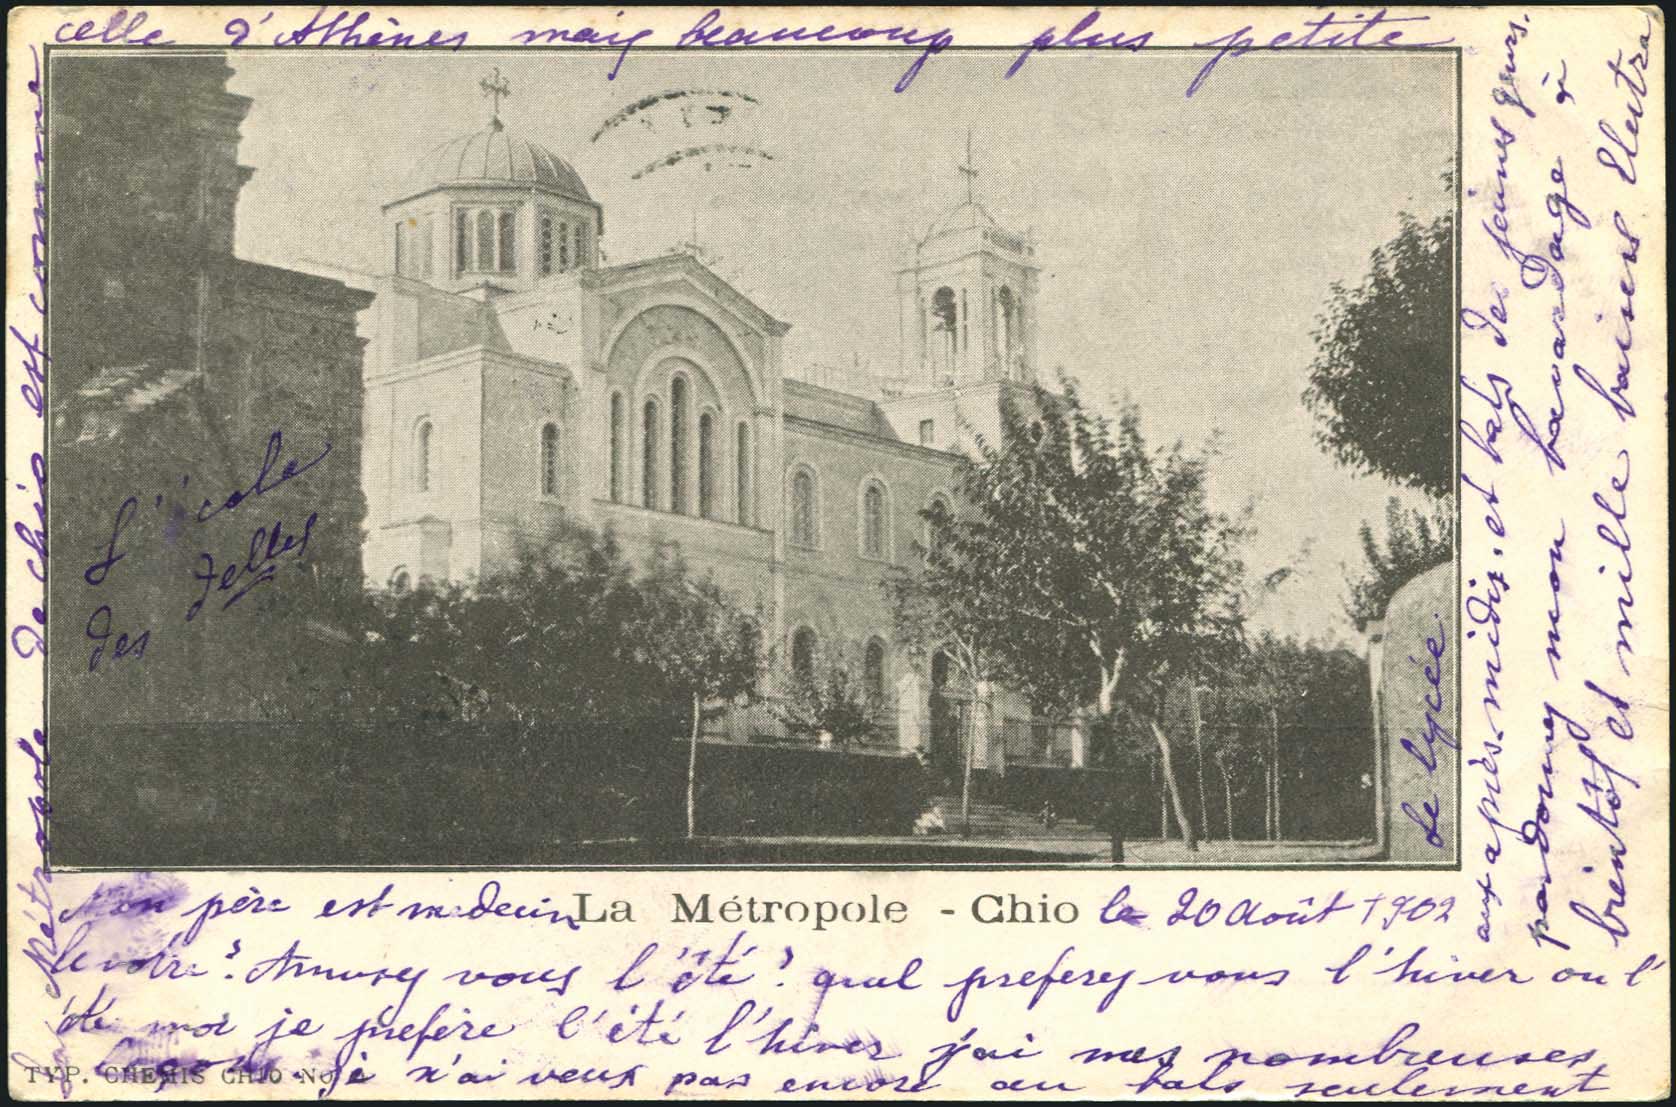 Métropole de chio est comme
celle d'Athènes mais beaucoup plus petite
L'école
des
delles
Le lycée
La Métropole - Chio
le 20 Août 1902
Mon père est medecin
le votre? Amusez vous l'été? quel preferez vous l'hiver ou l'
été moi je prefère l'été l'hiver j'ai mes nombreuses
leçons. je n'ai veux pas encore au bals seulement
TYP. CHEMIS CHIO No
aux après-midis et bals des jeunes
pardonnez mon bavardage à
bientôt et mille baisers Electra